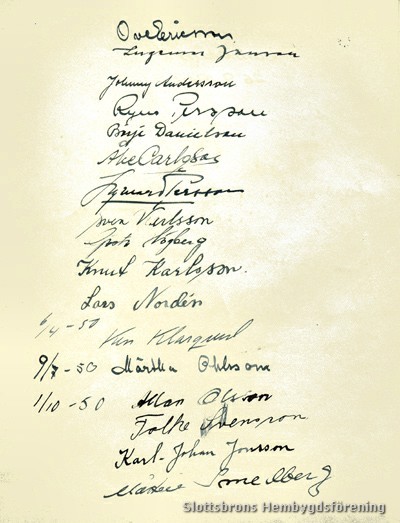 Ove Ericsson
Ingemar Jansson
Johnny Andersson
Persson
Börje Danielsson
Åke Carlsson
Ingmar Persson
Sven Verlsson
Gösta Högberg
Knut Karlsson.
Lars Nordén
6/4 - 50
9/7 - 50 Märtha Ohlsson
1/10 - 50 Allan Olsson
Folke Svensson
Karl-Johan Jonsson
Smedberg
Slottsbrons Hembygdsförening